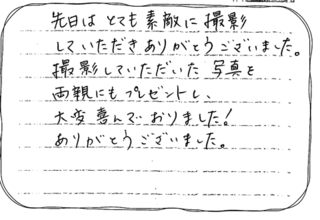 先日は とても 素敵に 撮影
していただき ありがとうございました。
撮影していただいた 写真を
両親にも プレゼントし、
大変 喜んで おりました！
ありがとうございました。